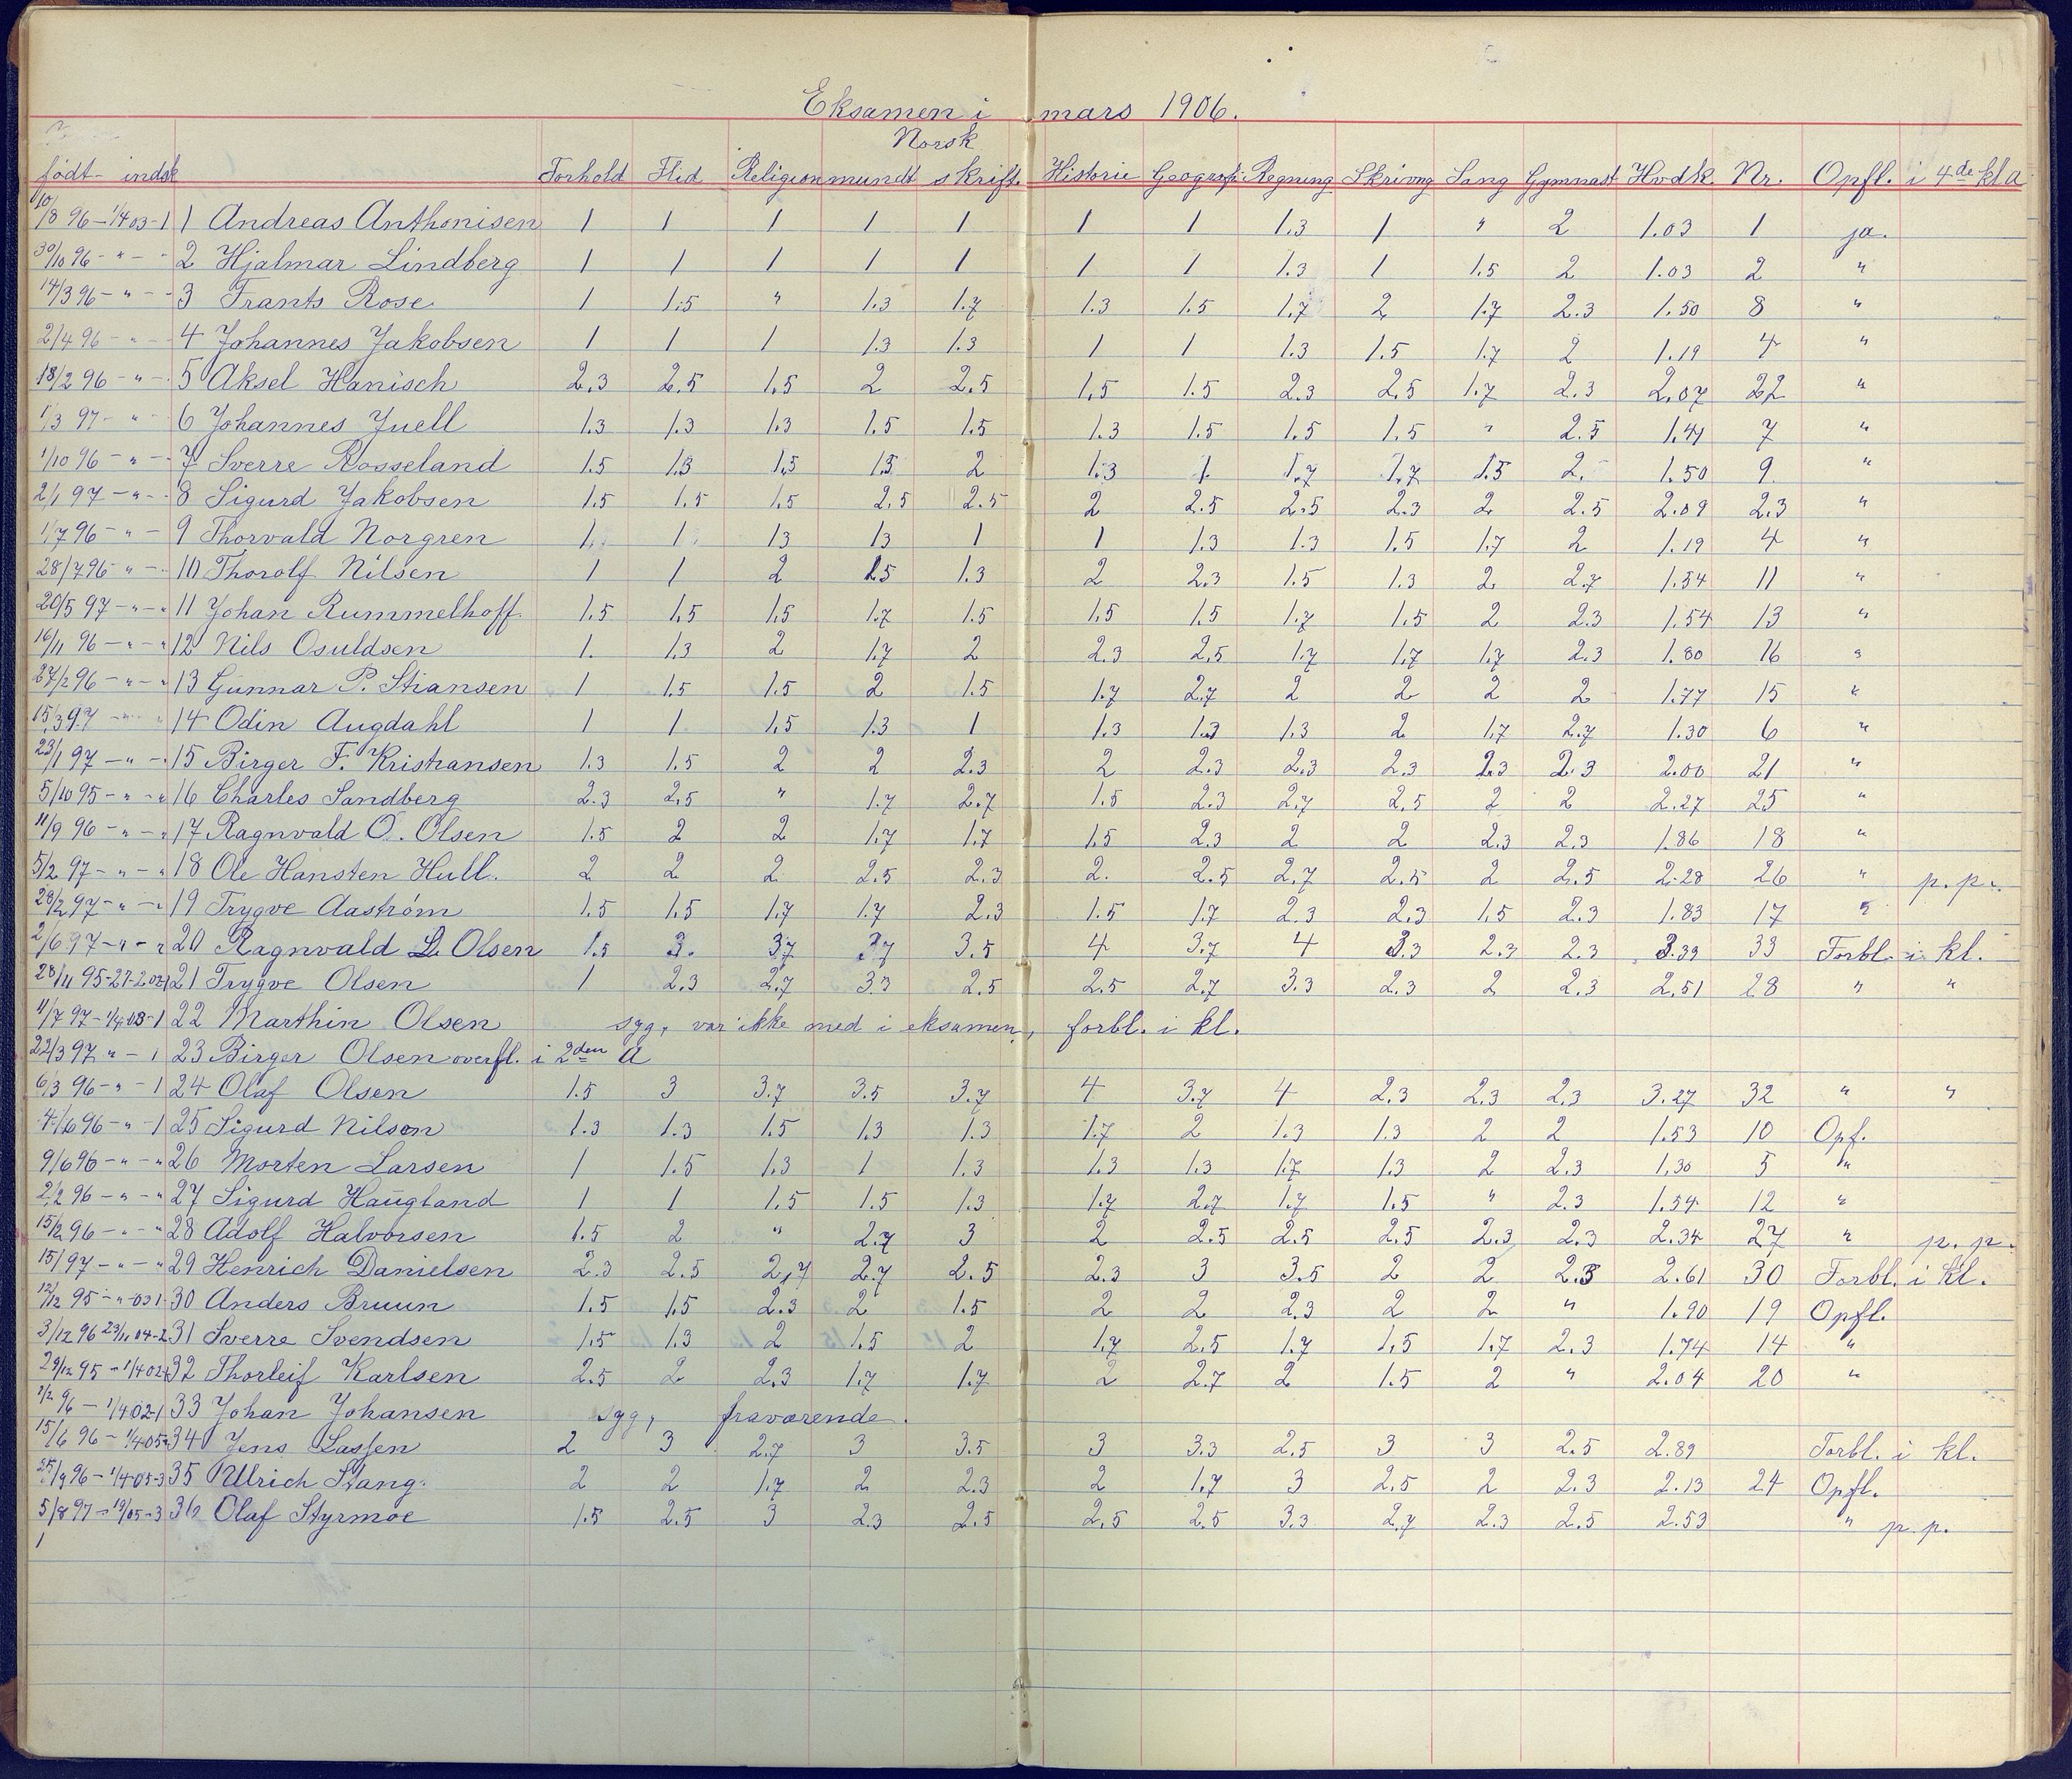 Eksamen i mars 1906.
Norsk
født- indsk Forhold Flid Religion mundt skrift. Historie Geografi Regning Skrivng Sang Gymnast Hvdk. Nr. Opfl. i 4de kl a
10/8 96 - 1/4 03-1 1 Andreas Anthonisen 1 1 1 1 1 1 1 1.3 1 " 2 1.03 1 ja.
30/10 96 - " - - 2 Hjalmar Lindberg 1 1 1 1 1 1 1 1.3 1 1.5 2 1.03 2 "
14/3 96 - " - - 3 Frants Rose 1 1.5 " 1.3 1.7 1.3 1.5 1.7 2 1.7 2.3 1.50 8 "
2/4 96 - " - 4 Johannes Jakobsen 1 1 1 1.3 1.3 1 1 1.3 1.5 1.7 2 1.19 4 "
18/2 96 - " - 5 Aksel Hanisch 2.3 2.5 1.5 2 2.5 1.5 1.5 2.3 2.5 1.7 2.3 2.07 22 "
1/3 97 - " - 6 Johannes Juell 1.3 1.3 1.3 1.5 1.5 1.3 1.5 1.5 1.5 " 2.5 1.41 7 "
1/10 96 - " - 7 Sverre Rosseland 1.5 1.3 1.5 1.5 2 1.3 1. 1.7 1.7 1.5 2. 1.50 9. "
2/1 97 - " - - 8 Sigurd Jakobsen 1.5 1.5 1.5 2.5 2.5 2 2.5 2.5 2.3 2 2.5 2.09 2.3 "
1/7 96 - " - 9 Thorvald Norgren 1 1 1.3 1.3 1 1 1.3 1.3 1.5 1.7 2 1.19 4 "
28/7 96 - " - 10 Thorolf Nilsen 1 1 2 1.5 1.3 2 2.3 1.5 1.3 2 2.7 1.54 11 "
20/5 97 - " - " 11 Johan Rummelhoff. 1.5 1.5 1.5 1.7 1.5 1.5 1.5 1.7 1.5 2 2.3 1.54 13 "
16/11 96 - " - " 12 Nils Osuldsen 1. 1.3 2 1.7 2 2.3 2.5 1.7 1.7 1.7 2.3 1.80 16 "
27/2 96 - " - " 13 Gunnar P. Stiansen 1 1.5 1.5 2 1.5 1.7 2.7 2 2 2 2 1.77 15 "
15/3 97 - " " 14 Odin Augdahl 1 1 1.5 1.3 1 1.3 1.3 1.3 2 1.7 2.7 1.30 6 "
23/1 97 - " - 15 Birger F. Kristiansen 1.3 1.5 2 2 2.3 2 2.3 2.3 2.3 2.3 2.3 2.00 21 "
5/10 95 - " - " 16 Charles Sandberg 2.3 2.5 " 1.7 2.7 1.5 2.3 2.7 2.5 2 2 2.27 25 "
11/9 96 - " - " 17 Ragnvald O. Olsen 1.5 2 2 1.7 1.7 1.5 2.3 2 2 2.3 2.3 1.86 18 "
5/2 97 - " - " 18 Ole Hansten Hull. 2 2 2 2.5 2.3 2. 2.5 2.7 2.5 2 2.5 2.28 26 " p. p.
28/2 97 - " - " 19 Trygve Aastrøm 1.5 1.5 1.7 1.7 2.3 1.5 1.7 2.3 2.3 1.5 2.3 1.83 17 "
2/6 97 - " - " 20 Ragnvald L. Olsen 1.5 3. 3.7 3.7 3.5 4 3.7 4 3.3 2.3 2.3 3.39 33 Forbl. i kl.
28/11 95-27-2 02-1 21 Trygve Olsen 1 2.3 2.7 3.3 2.5 2.5 2.7 3.3 2.3 2 2.3 2.51 28 " "
11/7 97 - 1/4 03-1 22 Marthin Olsen syg, var ikke med i eksamen, forbl. i kl.
22/3 97 " - 1 23 Birger Olsen overfl. i 2den a
6/3 96 - " - 1 24 Olaf Olsen 1.5 3 3.7 3.5 3.7 4 3.7 4 2.3 2.3 2.3 3.27 32 " "
4/6 96 - " - 1 25 Sigurd Nilson 1.3 1.3 1.5 1.3 1.3 1.7 2 1.3 1.3 2 2 1.53 10 Opf.
9/6 96 - " - " 26 Morten Larsen 1 1.5 1.3 1 1.3 1.3 1.3 1.7 1.3 2 2.3 1.30 5 "
2/2 96 - " - " 27 Sigurd Haugland 1 1 1.5 1.5 1.3 1.7 2.7 1.7 1.5 " 2.3 1.54 12 "
15/2 96 - " - " 28 Adolf Halvorsen 1.5 2 " 2.7 3 2 2.5 2.5 2.5 2.3 2.3 2.34 27 " p. p.
15/1 97 - " - " 29 Henrich Danielsen 2.3 2.5 2.7 2.7 2.5 2.3 3 3.5 2 2 2.3 2.61 30 Forbl. i kl.
12/12 95 - " - 03 1 30 Anders Bruun 1.5 1.5 2.3 2 1.5 2 2 2.3 2 2 " 1.90 19 Opfl.
3/12 96 23/11 04-2 31 Sverre Svendsen 1.5 1.3 2 1.5 2 1.7 2.5 1.7 1.5 1.7 2.3 1.74 14 "
29/12 95 - 1/4 02-1 32 Thorleif Karlsen 2.5 2 2.3 1.7 1.7 2 2.7 2 1.5 2 " 2.04 20 "
96 - 1/4 02-1 33 Johan Johansen syg, fraværende.
15/6 96 - 1/4 05-3 34 Jens Lassen 2 3 2.7 3 3.5 3 3.3 2.5 3 3 2.5 2.89 Forbl. i kl.
25/9 96 - 1/4 05-3 35 Ulrich Stang. 2 2 1.7 2 2.3 2 1.7 3 2.5 2 2.3 2.13 24 Opfl.
5/8 97 - 05-3 36 Olaf Styrmoe 1.5 2.5 3 2.3 2.5 2.5 2.5 3.3 2.7 2.3 2.5 2.53 " p. p.